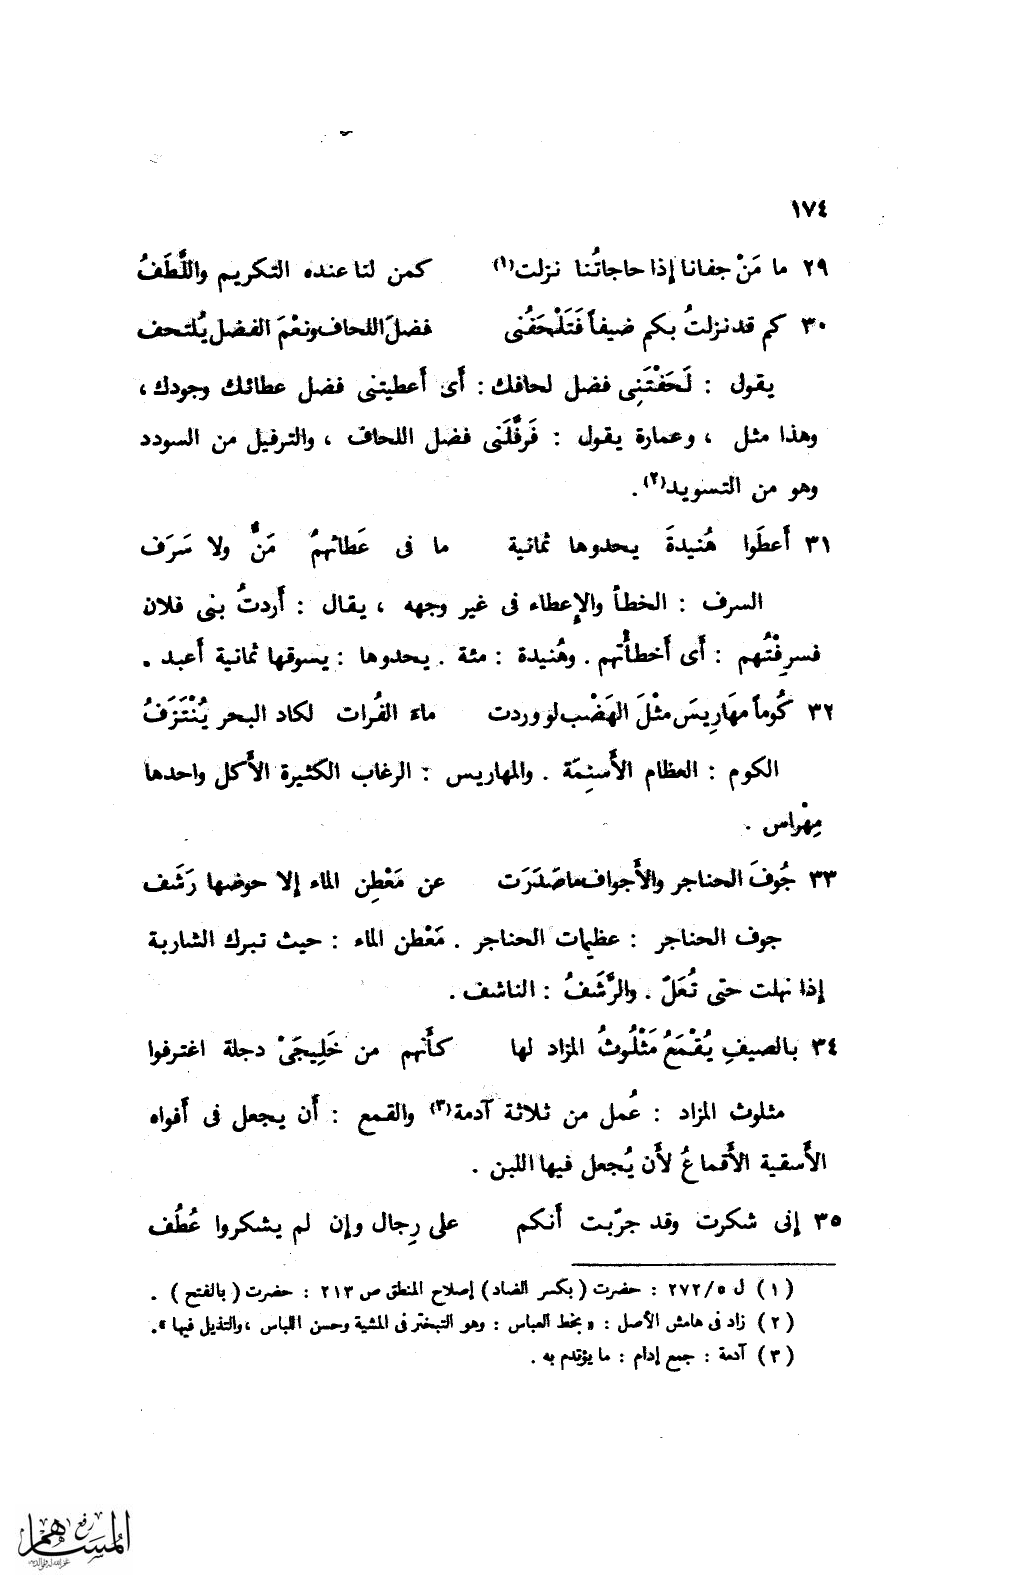 ١٧٤
٢٩ ما مَنْ جفانا إذا حاجاتُنا نزلت(١) كمن لنا عنده التكريم واللَّطَفُ
٣٠ كم قد نزلتُ بكم ضيفاً فَتَلْحَفُنى فضلَ اللحاف ونعْمَ الفضل يُلتحف
يقول : لَحَفْتَنِى فضل لحافك : أى أعطيتنى فضل عطائك وجودك ،
وهذا مثل ، وعمارة يقول : فَرفَّلَنى فضل اللحاف ، والترفيل من السودد
وهو من التسويد(٢) .
٣١ أَعطَوا هُنيدةَ يحدوها ثمانية ما فى عَطائهمُ مَنٌّ ولا سَرَف
السرف : الخطأ والإعطاء فى غير وجهه ، يقال : أَردتُ بنى فلان
فسرِفْتُهم : أَى أَخطأْتُهم . وهُنيدة : مئة . يحدوها : يسوقها ثمانية أَعبد .
٣٢ كُوماً مهَارِيسَ مثْلَ الهَضْب لو وردت ماءَ الفُرات لكاد البحر يُنْتَزَفُ
الكوم : العظام الأَسنِمَة . والمهاريس : الرغاب الكثيرة الأَكل واحدها
مِهْراس .
٣٣ جُوفَ الحناجر والأَجواف ما صَدَرَت عن مَعْطِن الماء إلا حوضها رَشَف
جوف الحناجر : عظيمات الحناجر . مَعْطن الماء : حيث تبرك الشاربة
إذا نهلت حتى تُعَلّ . والرَّشَفُ : الناشف .
٣٤ بالصيفِ يُقْمَعُ مَثْلُوثُ المزاد لها كأَنهم من خَلِيجَىْ دجلة اغترفوا
مثلوث المزاد : عُمل من ثلاثة آدمة(٣) والقمع : أَن يجعل فى أَفواه
الأَسقية الأَقماعُ لأَن يُجعل فيها اللبن .
٣٥ إنى شكرت وقد جرّبت أَنكم على رِجال وإن لم يشكروا عُطُف
(١) ل ٢٧٢/٥ : حضرت (بكسر الضاد) إصلاح المنطق ص ٢١٣ : حضرت (بالفتح) .
(٢) زاد فى هامش الأصل : « بخط العباس : وهو التبختر فى المشية وحسن اللباس ، والتذيل فيها » .
(٣) آدمة : جمع إدام : ما يؤتدم به .
رفع
المساهم